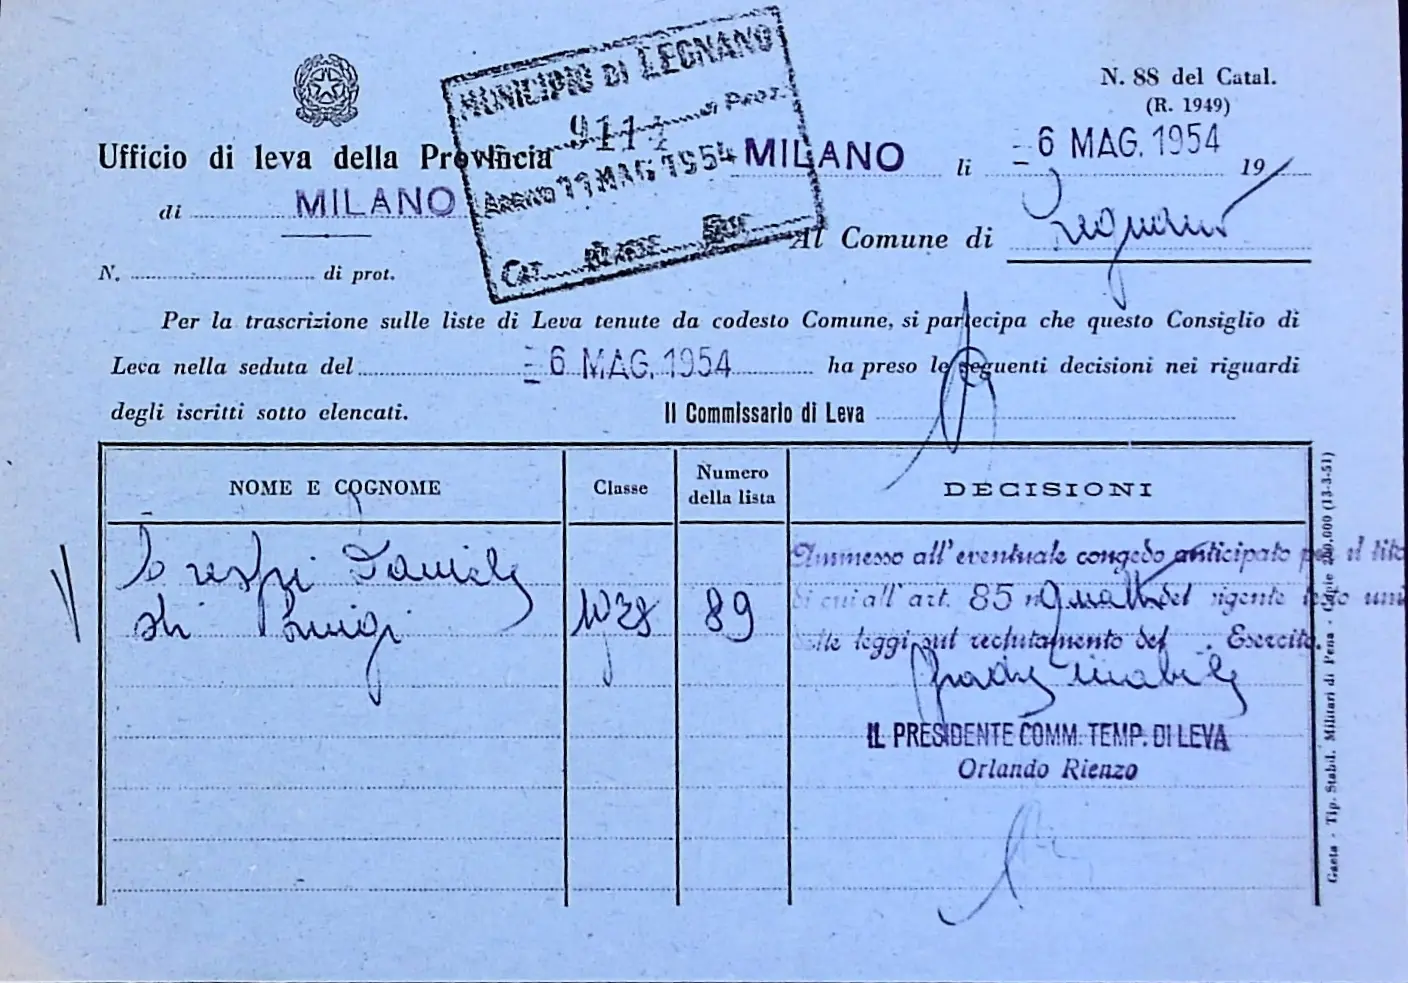 MUNICIPIO DI LEGNANO
di Prot.
Arrivo 11 MAG 1954
Cat. Classe
N. 88 del Catal.
(R. 1949)
Ufficio di leva della Provincia
di MILANO
MILANO li - 6 MAG. 1954 19
Al Comune di Legnano
N. di prot.
Per la trascrizione sulle liste di Leva tenute da codesto Comune, si partecipa che questo Consiglio di
Leva nella seduta del - 6 MAG. 1954 ha preso le seguenti decisioni nei riguardi
degli iscritti sotto elencati. Il Commissario di Leva
NOME E COGNOME Classe Numero della lista DECISIONI
Daniele
di Luigi 89
Ammesso all' eventuale congedo anticipato per il tito
di cui all' art. 85 n. del vigente testo uni
delle leggi sul reclutamento del . Esercito.
IL PRESIDENTE COMM. TEMP. DI LEVA
Orlando Rienzo
Gaeta - Tip. Stabil. Militari di Pena - (13-3-51)